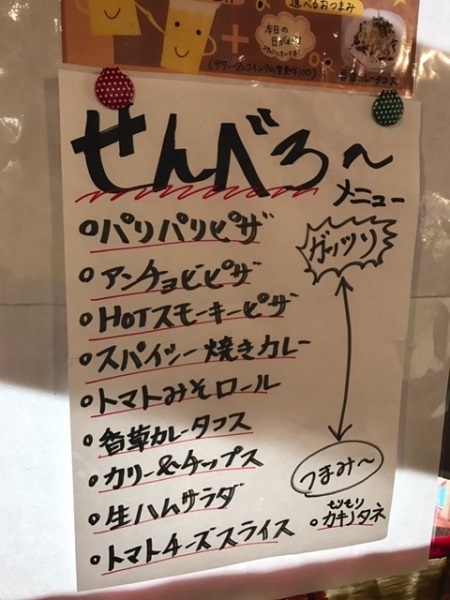 選べるおつまみ
本日の
せんべろ〜
メニュー
○パリパリピザ
○アンチョビピザ
○HOTスモーキーピザ
○スパイシー焼きカレー
○トマトみそロール
○香草カレータコス
○カリー&チップス
○生ハムサラダ
○トマトチーズスライス
ガッツリ
つまみ〜
もりもり
○カキノタネ